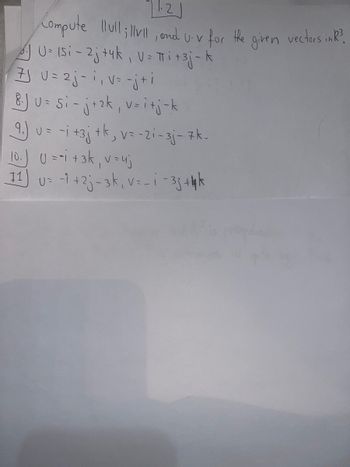 1.2
Compute ||u||, ||v||, and u·v for the given vectors in R³.
6.) U = 15i - 2j + 4k, V = πi + 3j - k
7.) U = 2j - i, V = -j + i
8.) U = 5i - j + 2k, V = i + j - k
9.) U = -i + 3j + k, V = -2i - 3j - 7k.
10.) U = -i + 3k, V = 4j
11.) U = -i + 2j - 3k, V = -i - 3j + 4k